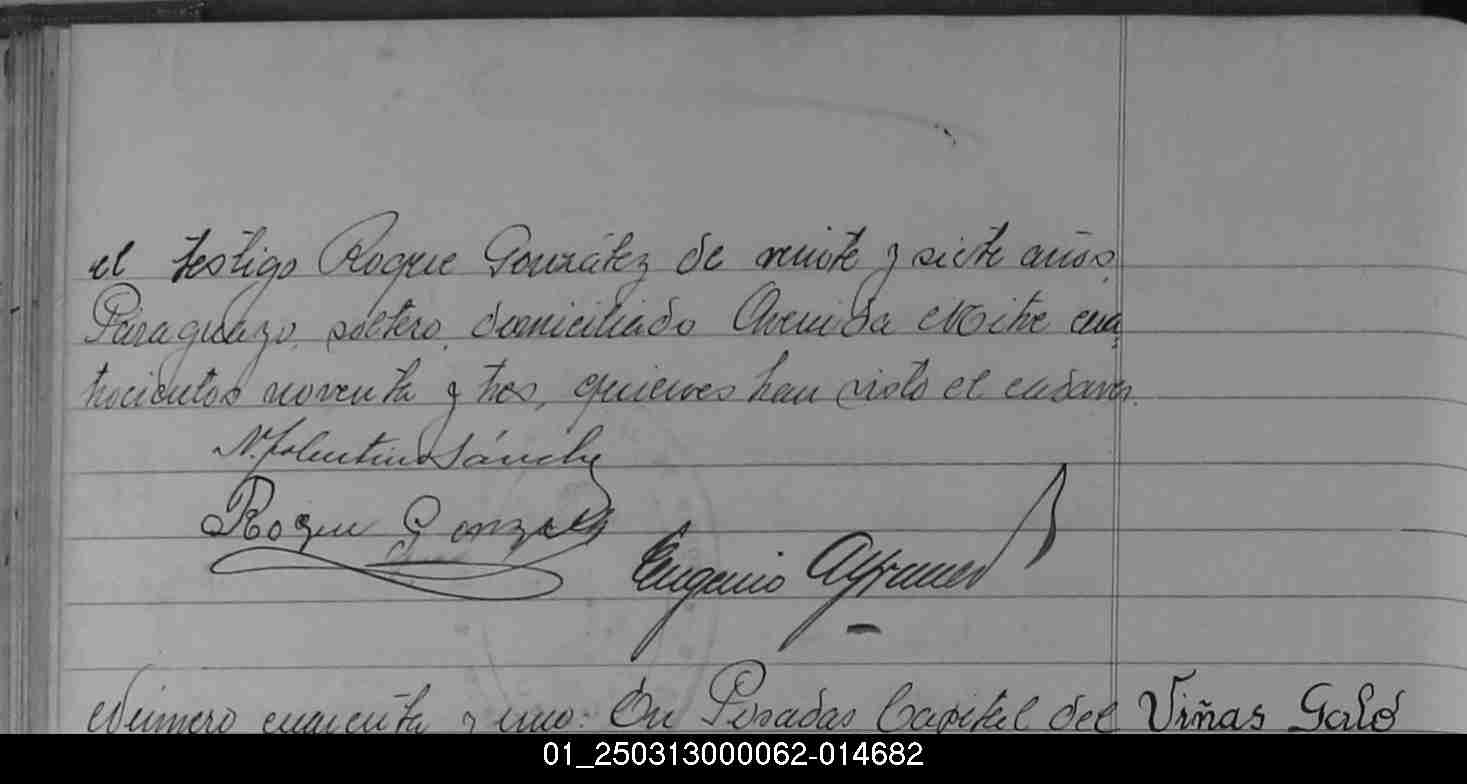 el testigo Roque González de veinte y siete años,
Paraguayo, soltero, domiciliado Avenida Mitre cua
trocientos noventa y tres, quienes han visto el cadaver.
N. Sánchez
Roque Gonzalez
Eugenio
Número cuarenta y uno: En Posadas Capital del
Viñas Galó
01_250313000062-014682